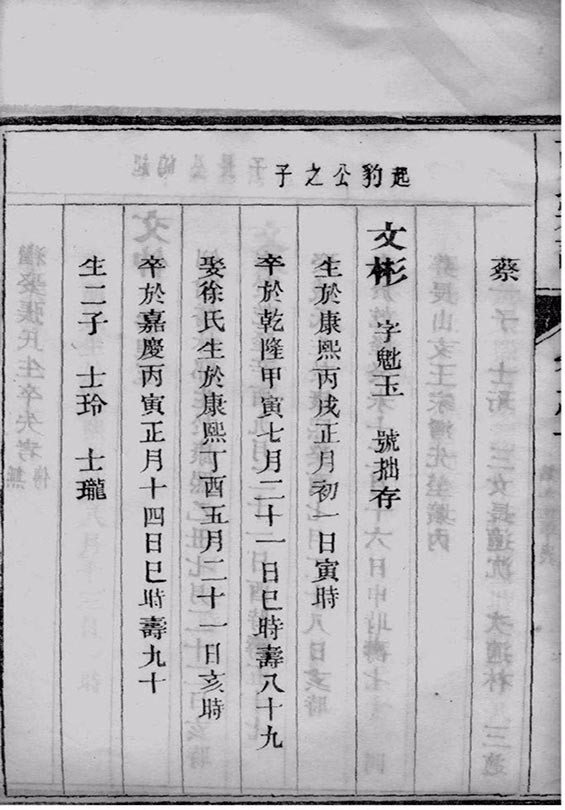 蔡
起豹公之子
文彬 字魁玉 號拙存
生於康熙丙戌正月初一日寅時
卒於乾隆甲寅七月二十一日巳時壽八十九
娶徐氏生於康熙丁酉五月二十一日亥時
卒於嘉慶丙寅正月十四日巳時壽九十
生二子 士玲 士瓏